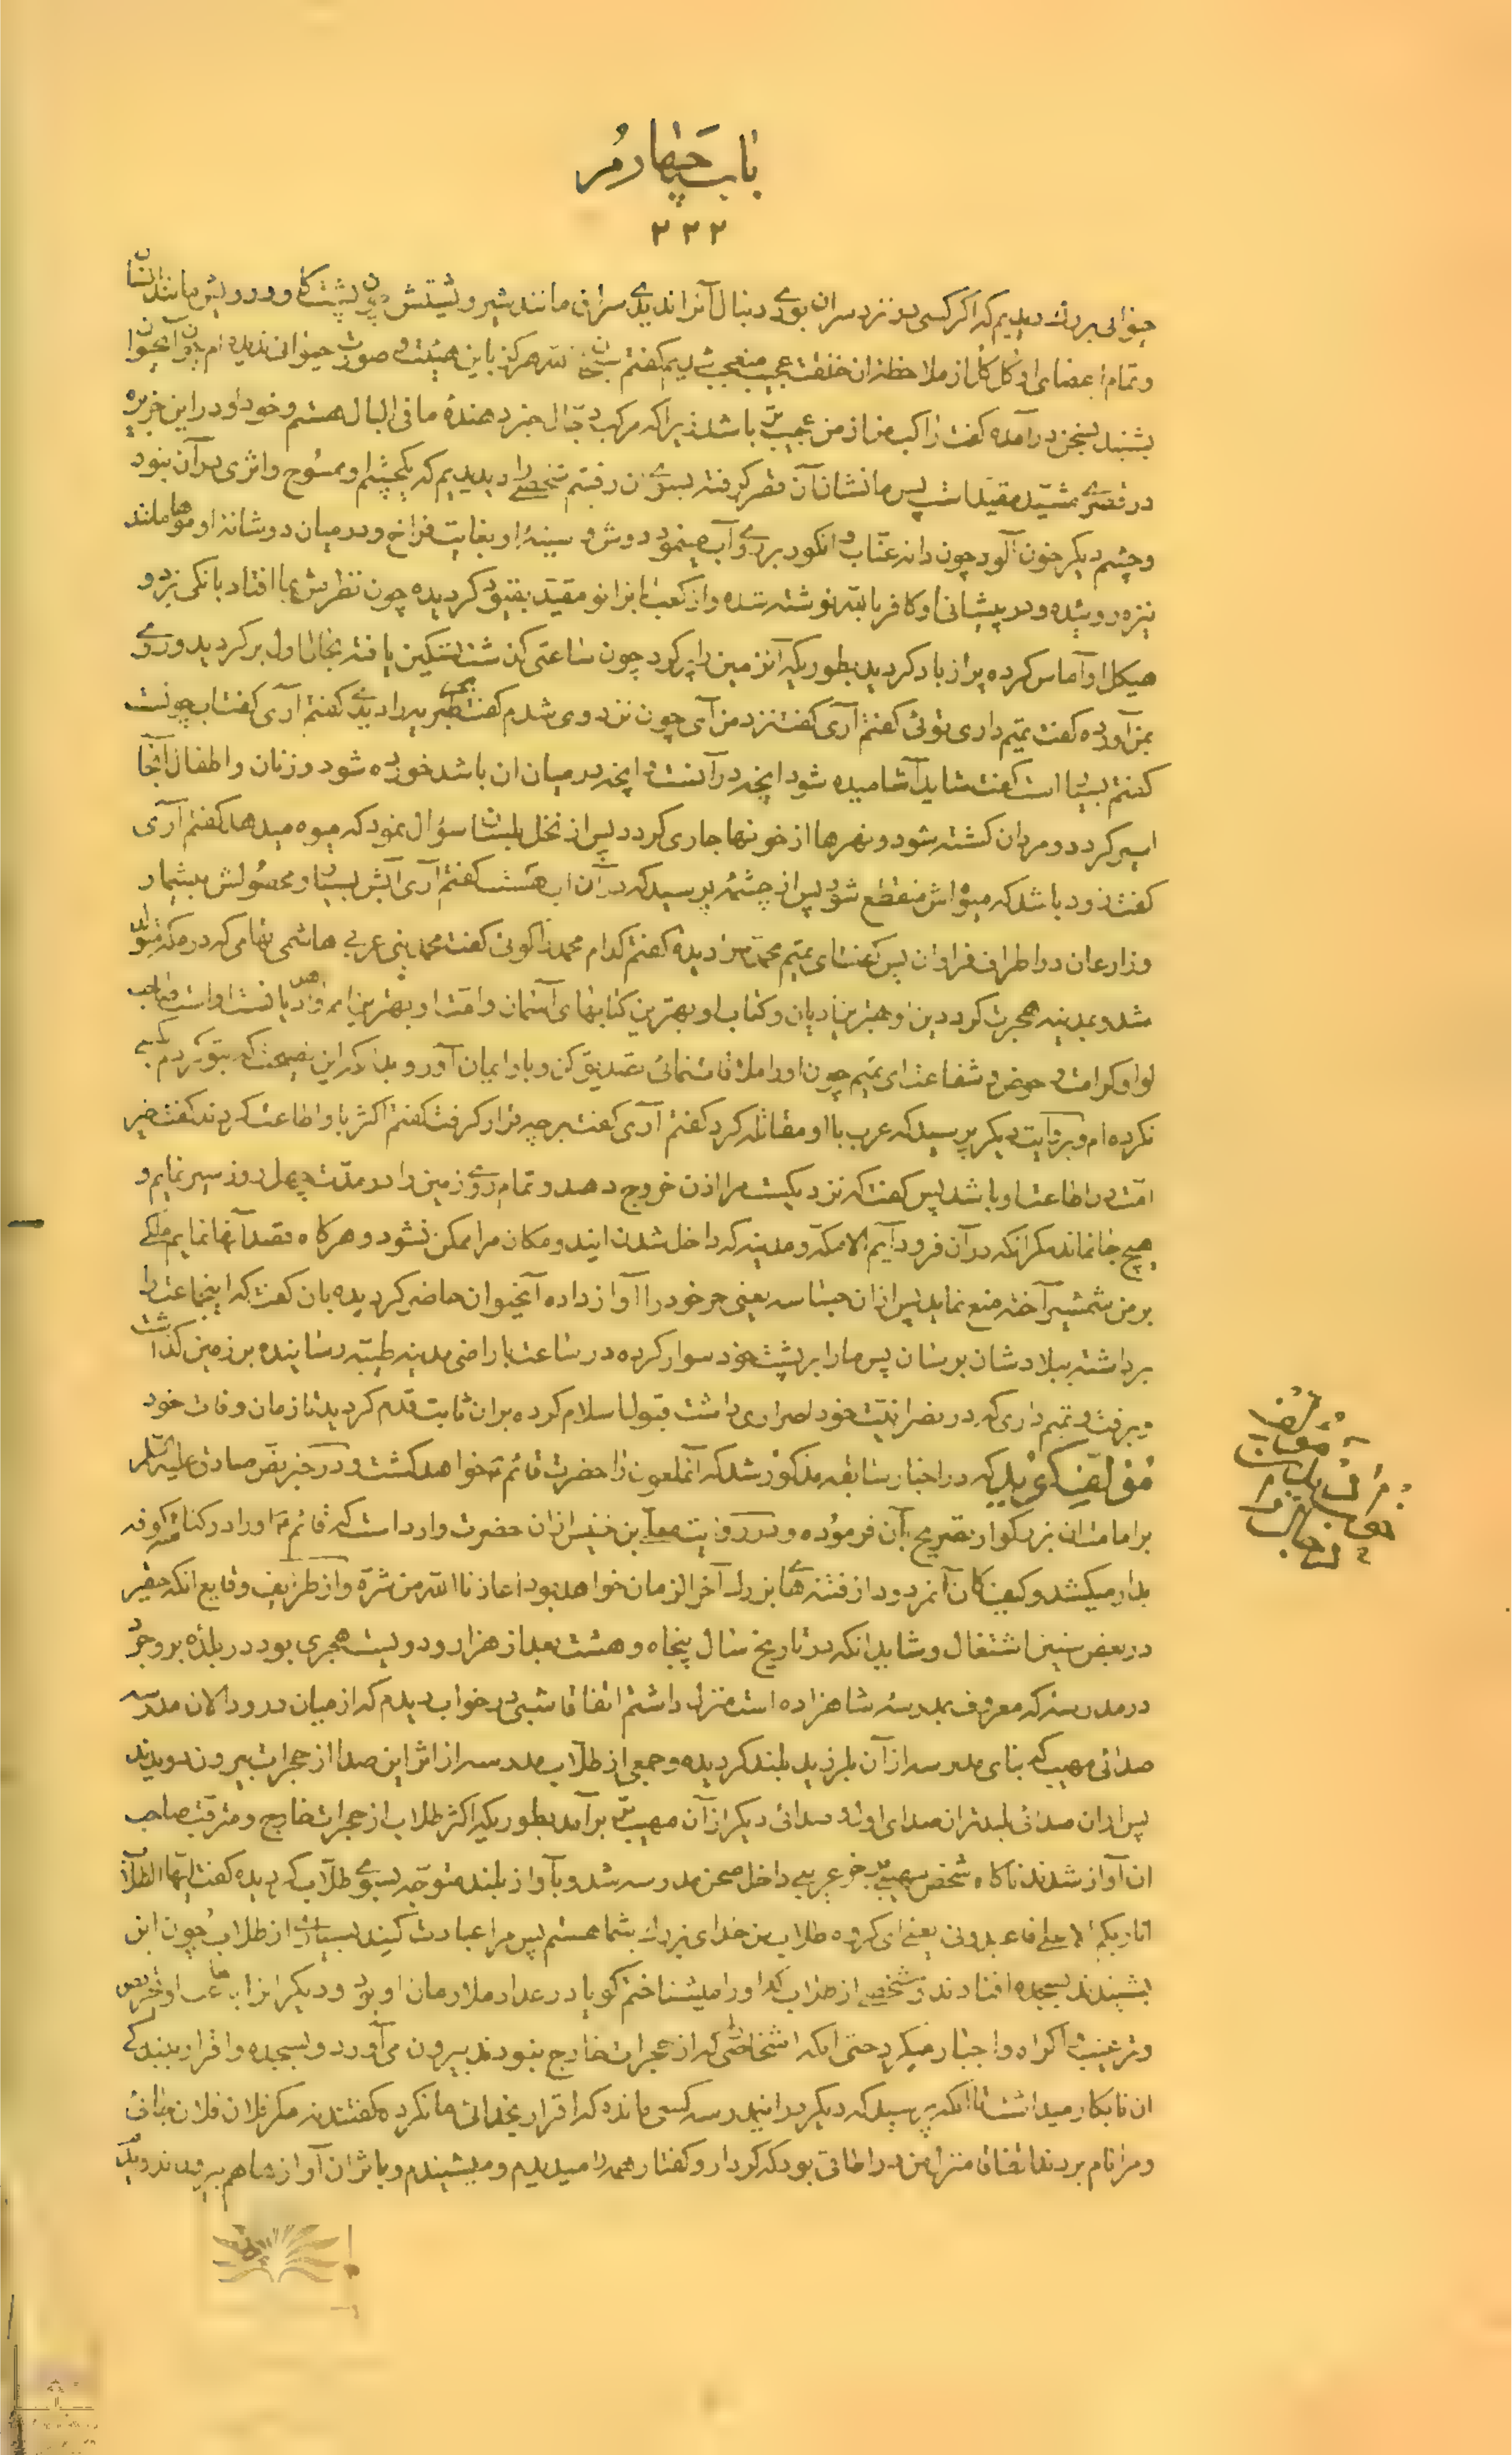 باب چهارم
۲۳۲
حیوانی بزرك دیدیم که اکر کسی در نزد سر ان بودی دنبال آنرا ندیدی سر ان مانند شیر و پشتش چون پشت کاو و در رویش مانند انسان
و تمام اعضای او کل کل از ملاحظه ان خلقت عجیب متعجب شدیم کفتم سبحان الله هرکز باین هیئت و صورت حیوانی ندیده ام چون آن حیوان
بشنید بسخن درآمده کفت راکب من از من عجیب تر باشد زیرا که مرکب دجال خبر دهندهٔ ما فی البال هستم و خود او در این جزیره
در قصری مشید مقید است پس ما نشان آن قصر کرفته بسوی آن رفتیم شخصی را دیدیم که یکچشم او ممسوح و اثری بر آن نبود
و چشم دیکر خون آلود چون دانه عناب و انکور بردی و آب مینمود دوش و سینهٔ او بغایت فراخ و در میان دو شانه او موها مانند
نیزه روییده و در پیشانی او کافر بالله نوشته شده و از کعب تا بزانو مقید بقیود کردیده چون نظرش بما افتاد بانکی بزد و
هیکل او آماس کرده پر از باد کردید بطوریکه آنزمین را پر کرد چون ساعتی کذشت تسکین یافته بحال اول برکردید و روی
بمن آورده کفت تمیم داری توئی کفتم آری کفت نزد من آی چون نزد وی شدم کفت بحیره طبریه را دیدی کفتم آری کفت اب چونست
کفتم بسیار است کفت شاید آشامیده شود آنچه در آنست و آنچه در میان ان باشد خورده شود و زنان و اطفال آنجا
اسیر کردد و مردان کشته شود و نهرها از خونها جاری کردد پس از نخل بیسان سؤال نمود که میوه میدهد کفتم آری
کفت زود باشد که میوه اش منقطع شود پس از چشمهٔ پرسید که در آن اب هست کفتم آری آبش بسیار و محصولش بیشمار
و زارعان در اطراف فراوان پس کفت ای تمیم محمد را دیده کفتم کدام محمد را کوئی کفت محمد نبی عربی هاشمی تهامی که در مکه متولد
شد و بمدینه هجرت کرد دین او بهترین ادیان و کتاب او بهترین کتابهای آسمان و امت او بهترین امم خواهد یافت او است صاحب
لوا و کرامت و حوض و شفاعت ای تمیم چون او را ملاقات نمائی تصدیق کن و باو ایمان آور و بدانکه این نصیحت که بتو کردم بکسی
نکرده ام و بروایت دیکر پرسید که عرب با او مقاتله کرد کفتم آری کفت بر چه قرار کرفت کفتم اکثر باو اطاعت کردند کفت خیر
امت در اطاعت او باشد پس کفت که نزدیکست مرا اذن خروج دهد و تمام روی زمین را در مدت چهل روز سیر نمایم و
هیچ جا نماند مکر انکه در آن فرود آیم الا مکه و مدینه که داخل شدن ایندو مکان مرا ممکن نشود و هرکاه قصد آنها نمایم ملکی
بر من شمشیر آخته منع نماید پس از ان جساسه یعنی خر خود را آواز داده آنحیوان حاضر کردیده بان کفت که اینجماعت را
برداشته ببلادشان برسان پس ما را بر پشت خود سوار کرده در ساعت باراضی مدینه طیبه رسانیده بر زمین کذاشت
و برفت و تمیم داری که در نصرانیت خود اصراری داشت قبول اسلام کرده بر ان ثابت قدم کردید تا زمان وفات خود
مؤلف کوید که در اخبار سابقه مذکور شد که آنملعون را حضرت قائم خواهد کشت و در خبر بقیض صادق علیه السلام
بر امامت ان بزرکوار تصریح بآن فرموده و در روایت معلی بن خنیس از ان حضرت وارد است که قائم او را در کناسه کوفه
بدار میکشد و کیف کان آنمردود از فتنه های بزرك آخر الزمان خواهد بود اعاذنا الله من شره و از طرایف وقایع انکه حقیر
در بعض سنین اشتغال و شاید انکه در تاریخ سال پنجاه و هشت بعد از هزار و دویست هجری بود در بلدهٔ بروجرد
در مدرسه که معروف بمدرسه شاهزاده است منزل داشتم اتفاقا شبی در خواب دیدم که از میان در و دالان مدرسه
صدائی مهیب که بنای مدرسه از آن بلرزید بلند کردیده و جمعی از طلاب مدرسه از اثر این صدا از حجرات بیرون دویدند
پس از ان صدائی بلندتر از صدای اول و صدائی دیکر از آن مهیب تر برآمد بطوریکه اکثر طلاب از حجرات خارج و مترقب صاحب
ان آواز شدند ناکاه شخص مهیبی بر خر عجیبی داخل صحن مدرسه شد و بآواز بلند متوجه بسوی طلاب کردیده کفت ایها الطلاب
انا ربکم الاعلی فاعبدونی یعنی ای کروه طلاب من خدای بزرك شما هستم پس مرا عبادت کنید بسیاری از طلاب چون این
بشنیدند بسجده افتادند و شخصی از طلاب که او را میشناختم کویا در عداد ملازمان او بود و دیکرانرا
و ترغیب و اکراه و اجبار میکرد حتی انکه اشخاصی که از حجرات خارج نبودند بیرون می آورد و بسجده و اقرار ببندکی
ان نابکار میداشت تا آنکه پرسید که دیکر در این مدرسه کسی مانده که اقرار بخدائی ما نکرده کفتند نه مکر فلان فلان
و مرا نام بردند اتفاقا منزل من در اطاقی بود که کردار و کفتار همه را میدیدم و میشنیدم و باثر ان آوازها هم بیرون
مؤلف
خواب
دجال را